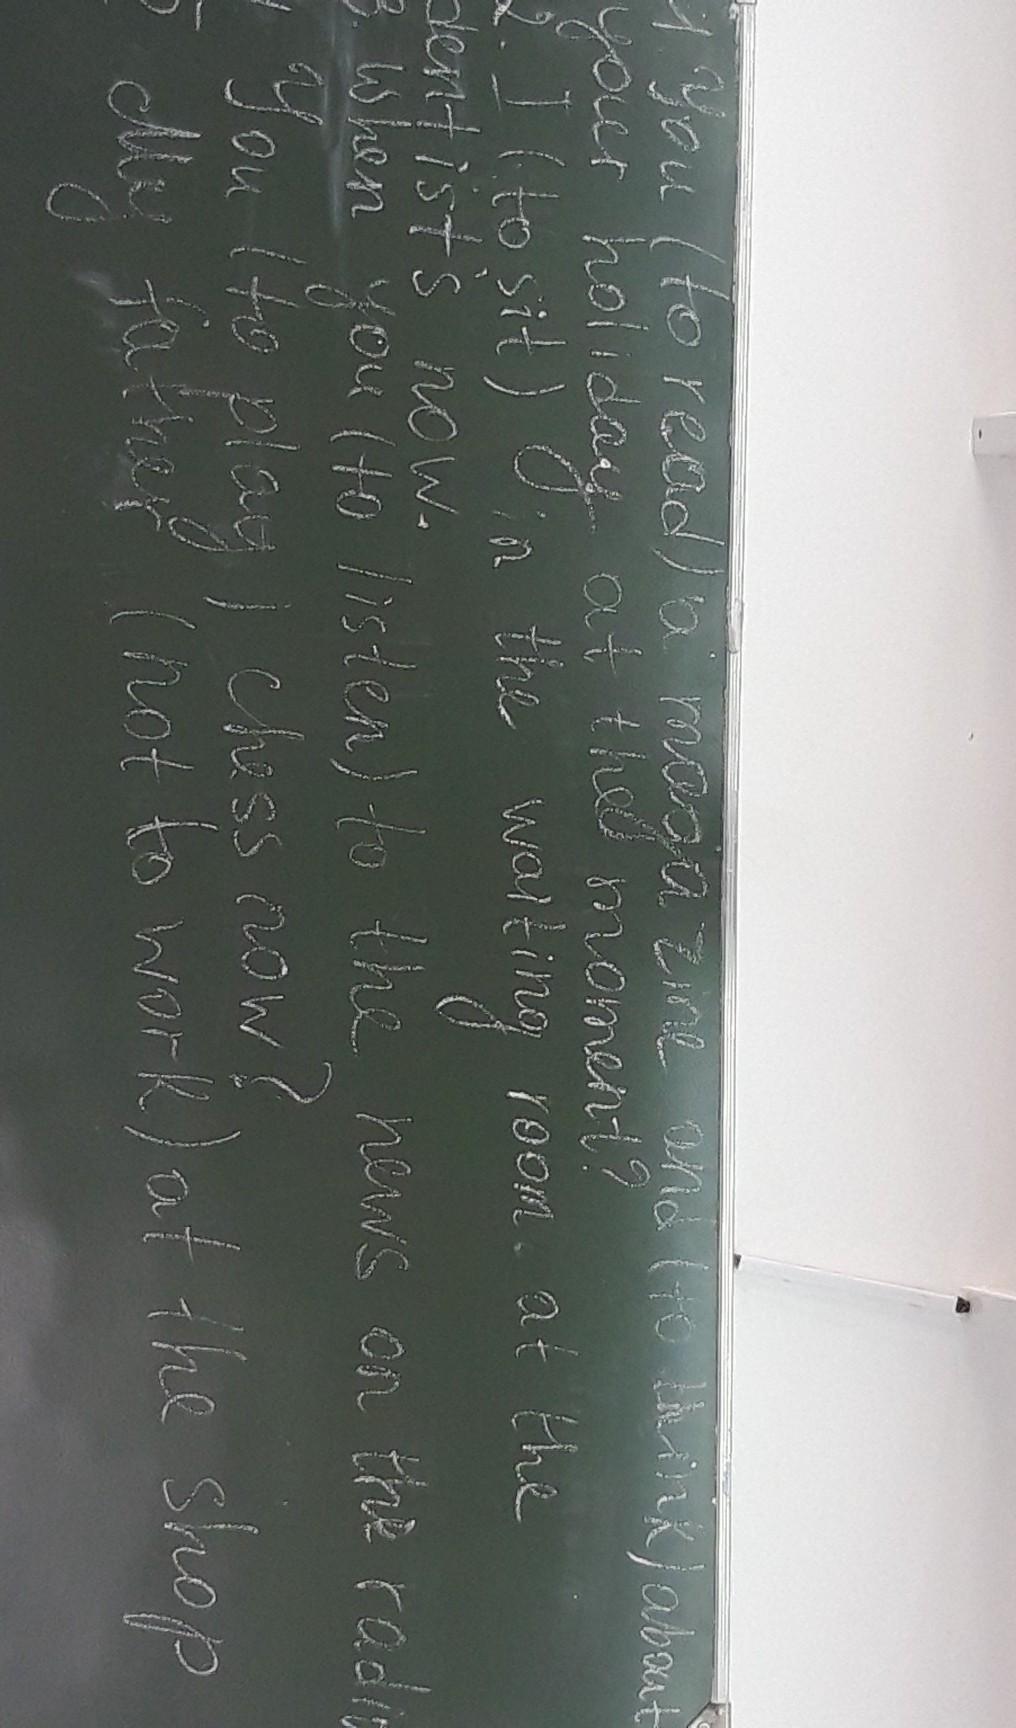 you (to read) a magazine and (to think) about
your holiday at the moment?
2. I (to sit) in the waiting room at the
dentist's now.
3. When you (to listen) to the news on the radio
4. you (to play) chess now?
5 My father (not to work) at the shop